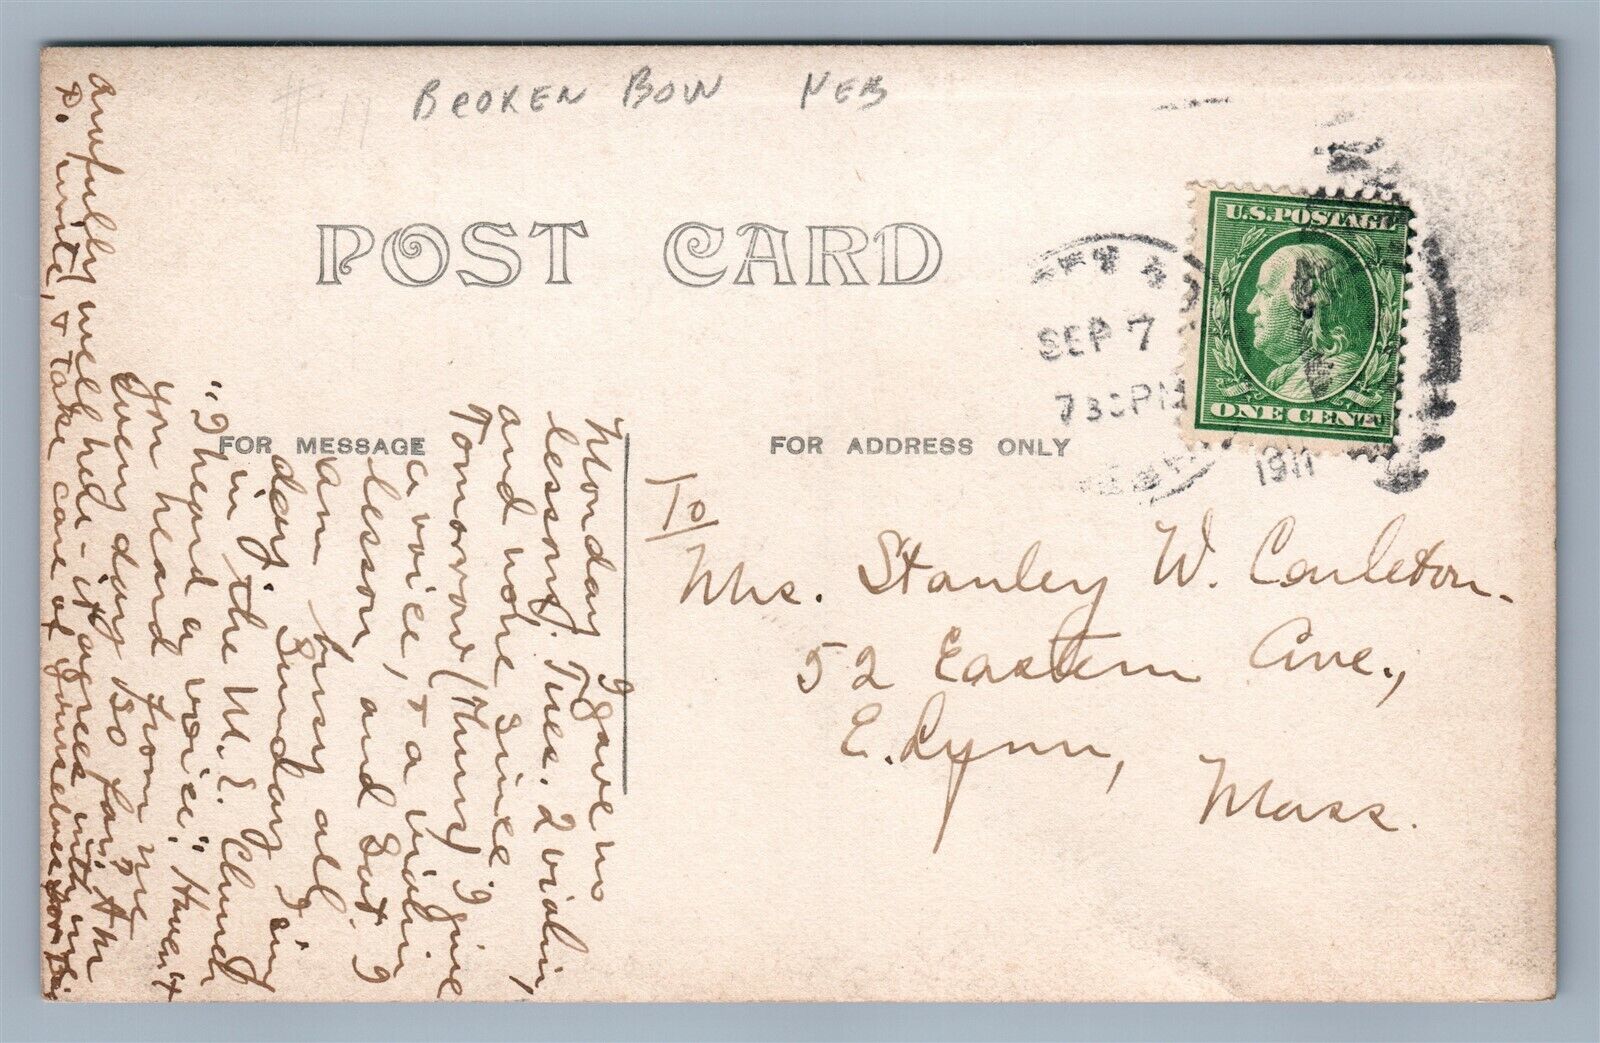 #11
BROKEN BOW NEB
POST CARD
FOR MESSAGE
FOR ADDRESS ONLY
U.S. POSTAGE
ONE CENT
SEP 7
730PM
1911
To
Mrs. Stanley W. Carleton.
52 Eastern Ave.,
E. Lynn,
Mass.
Monday I gave no
lessons. Tues. 2 violin,
and none since.
Tomorrow (Thurs) I give
a voice, & a violin
lesson, and Sat. I
am busy all
day. Sunday I sing
in the M.E. Church
"I heard a voice." Haven't
you heard from me
every day so far? Am
awfully well here - it agrees with me.
D. write, & take care of yourselves